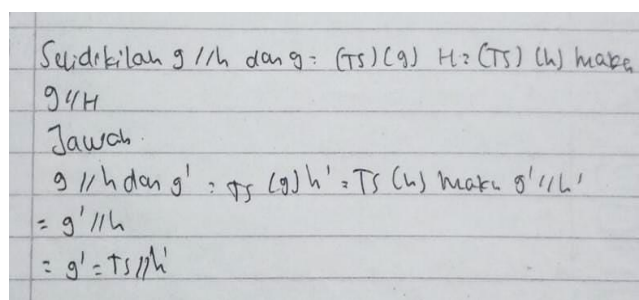 Selidikilah g //h dan g = (TS)(g) H = (TS) (h) maka
g//H
Jawab.
g //h dan g' = TS (g) h' = TS (h) maka g' //h'
= g' //h
= g' = TS //h'